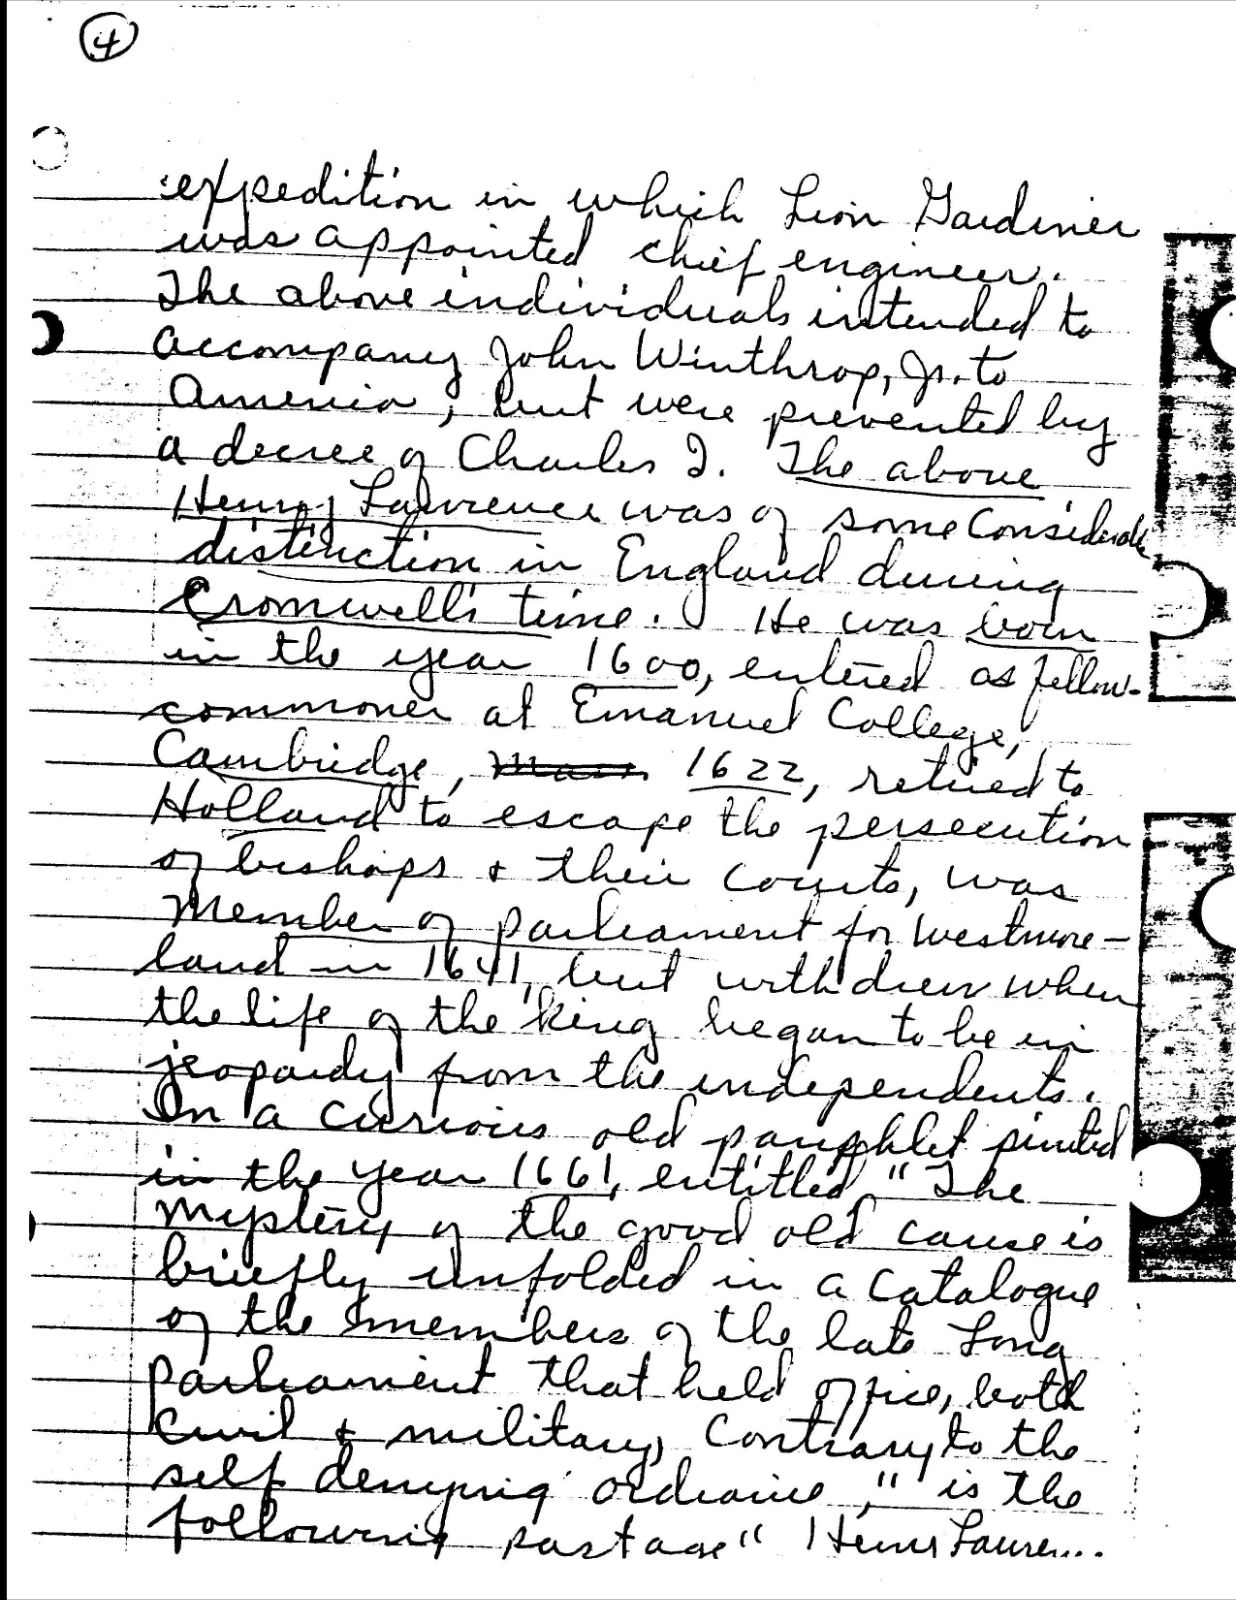 4
expedition in which Lion Gardiner
was appointed chief engineer.
The above individuals intended to
accompany John Winthrop, Jr. to
America, but were prevented by
a decree of Charles I. The above
Henry Lawrence was of some considerable
distinction in England during
Cromwell's time. He was born
in the year 1600, entered as fellow-
commoner at Emanuel College,
Cambridge, Mass. 1622, retired to
Holland to escape the persecution
of bishops & their courts, was
Member of parliament for Westmore-
land in 1641, but withdrew when
the life of the king began to be in
jeopardy from the independents.
In a curious old pamphlet printed
in the year 1661, entitled "The
Mystery of the good old cause is
briefly unfolded in a catalogue
of the members of the late Long
Parliament that held office, both
Civil & military, contrary to the
self denying ordiance," is the
following passage" Henry Lauren...